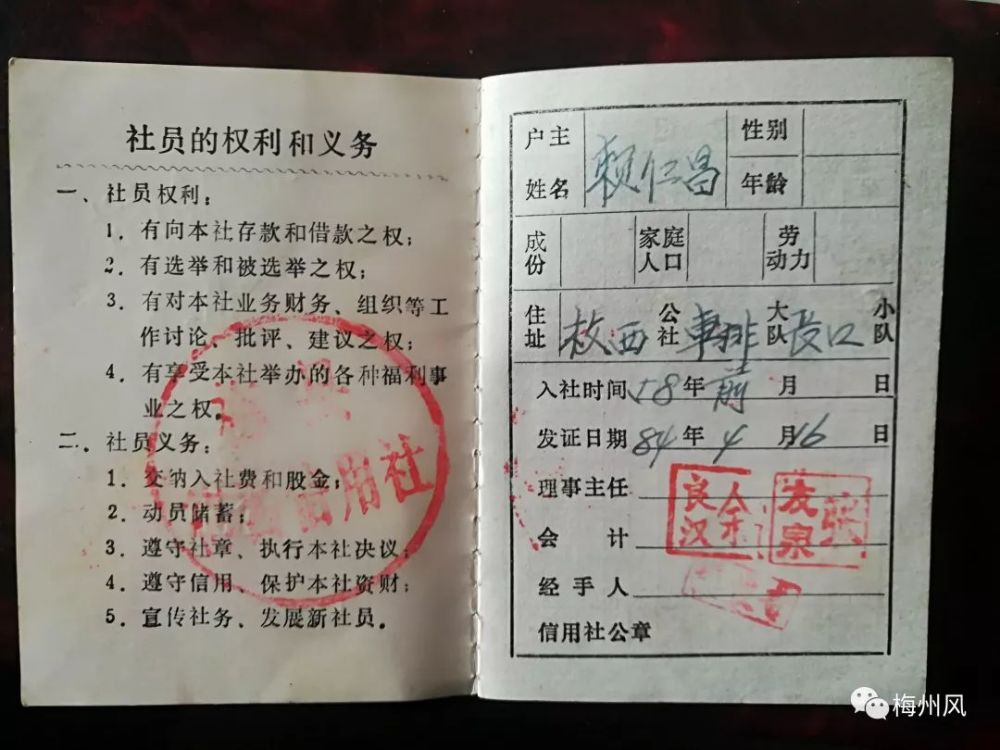 社员的权利和义务
一、社员权利：
1．有向本社存款和借款之权；
2．有选举和被选举之权；
3．有对本社业务财务、组织等工
作讨论、批评、建议之权；
4．有享受本社举办的各种福利事
业之权。
二．社员义务：
1．交纳入社费和股金；
2．动员储蓄；
3．遵守社章、执行本社决议；
4．遵守信用、保护本社资财；
5．宣传社务、发展新社员。
信用社
户主姓名 赖仁昌 性别 年龄
成份 家庭人口 劳动力
住址 西 公社 车排 大队 长口 小队
入社时间 58年前 月 日
发证日期 84年4月16日
理事主任
会计
经手人
信用社公章
良汉
张发泉
梅州风